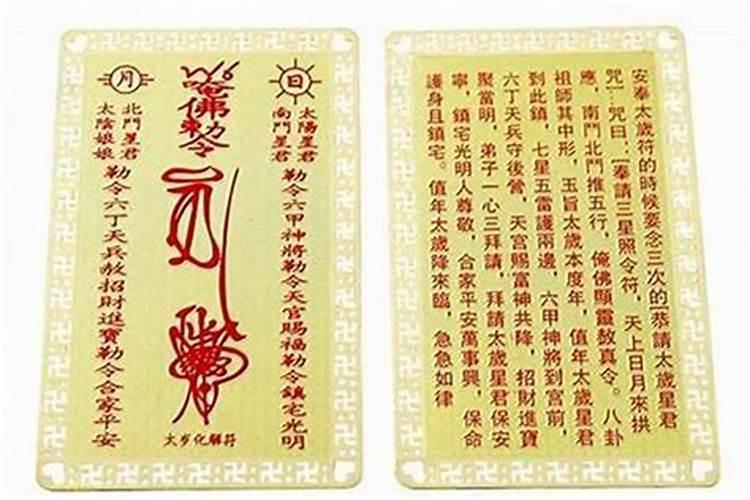 日
太陽星君
南鬥星君
勒令六甲神將勒令天官賜福勒令鎮宅光明
唵佛勅令
太岁化解符
月
北鬥星君
太陰娘娘
勒令六丁天兵赦招財進寶勒令合家平安
安奉太歲符的時候要念三次的[恭請太歲星君
咒]...咒曰:[奉請三星照令符,天上日月來拱
應,南鬥北鬥推五行,俺佛顯靈敖真令。八卦
祖師其中形,玉旨太歲本度年,值年太歲星君
到此鎮,七星五雷護兩邊,六甲神將到宫前,
六丁天兵守後營,天宫賜富神共降,招財進寶
聚當明,弟子一心三拜請,拜請太歲星君保安
寧,鎮宅光明人尊敬,合家平安萬事興,保命
護身且鎮宅。值年太歲降來臨,急急如律